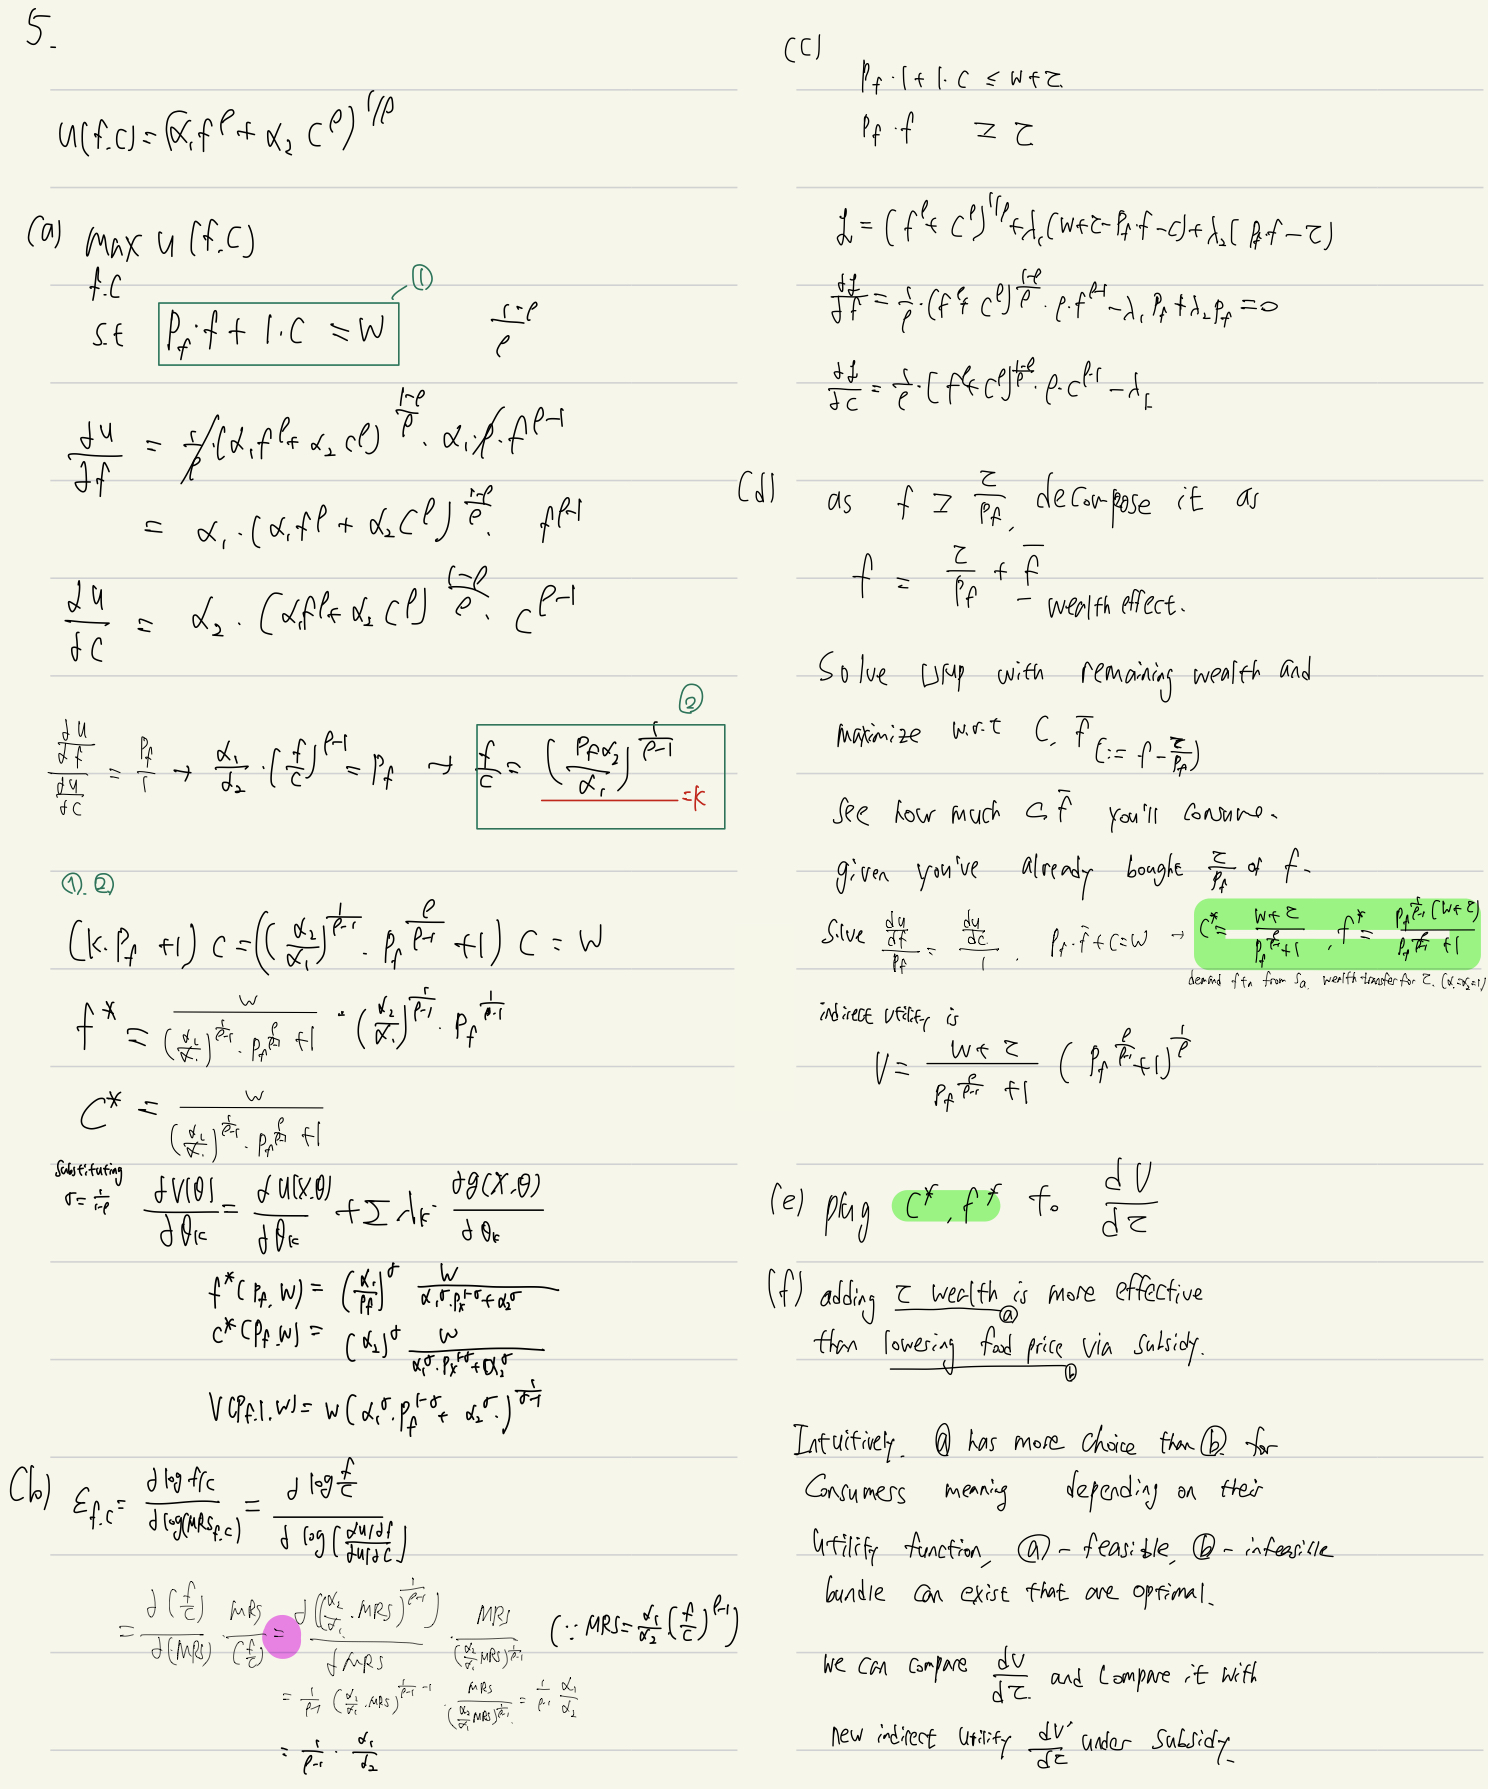 5.
u(f.c) = (α₁f^ρ + α₂ c^ρ)^{1/ρ}
(a) max u(f.c)
f.c
①
s.t P_f·f + 1·c = W
(1-ρ)/ρ
∂u/∂f = 1/ρ·(α₁f^ρ + α₂ c^ρ)^{(1-ρ)/ρ} · α₁·ρ·f^{ρ-1}
= α₁·(α₁f^ρ + α₂c^ρ)^{(1-ρ)/ρ} · f^{ρ-1}
∂u/∂c = α₂·(α₁f^ρ + α₂ c^ρ)^{(1-ρ)/ρ} · c^{ρ-1}
②
(∂u/∂f)/(∂u/∂c) = P_f/1 → α₁/α₂·(f/c)^{ρ-1} = P_f → f/c = (P_f α₂/α₁)^{1/(ρ-1)} = K
①.②
(K·P_f + 1) c = ((α₂/α₁)^{1/(ρ-1)} · P_f^{ρ/(ρ-1)} + 1) c = W
f* = W/((α₂/α₁)^{1/(ρ-1)} · P_f^{ρ/(ρ-1)} + 1) · (α₂/α₁)^{1/(ρ-1)} · P_f^{1/(ρ-1)}
c* = W/((α₂/α₁)^{1/(ρ-1)} · P_f^{ρ/(ρ-1)} + 1)
Substituting
σ = 1/(1-ρ)
∂V(θ)/∂θ_k = ∂u(X.θ)/∂θ_k + Σ λ_k · ∂g(X.θ)/∂θ_k
f*(P_f, W) = (α₁/P_f)^σ W/(α₁^σ·P_x^{1-σ} + α₂^σ)
c*(P_f.W) = (α₂)^σ W/(α₁^σ·P_x^{1-σ} + α₂^σ)
V(P_f.1.W) = W(α₁^σ·P_f^{1-σ} + α₂^σ·)^{1/(σ-1)}
(b) ε_{f.c} = ∂log f/c / ∂log(MRS_{f.c}) = ∂log f/c / ∂log[(∂u/∂f)/(∂u/∂c)]
= ∂(f/c)/∂(MRS) · MRS/(f/c) = ∂((α₂/α₁·MRS)^{1/(ρ-1)})/∂MRS · MRS/((α₂/α₁ MRS)^{1/(ρ-1)}) (∵ MRS = α₁/α₂(f/c)^{ρ-1})
= 1/(ρ-1) (α₂/α₁·MRS)^{1/(ρ-1) -1} · MRS/((α₂/α₁ MRS)^{1/(ρ-1)}) = 1/(ρ-1) α₁/α₂
= 1/(ρ-1) · α₁/α₂
(c)
P_f·f + 1·c ≤ W+τ
P_f·f ≥ τ
ℒ = (f^ρ + c^ρ)^{1/ρ} + λ₁(W+τ-P_f·f-c) + λ₂(P_f·f-τ)
∂ℒ/∂f = 1/ρ·(f^ρ + c^ρ)^{(1-ρ)/ρ} · ρ·f^{ρ-1} - λ₁P_f + λ₂P_f = 0
∂ℒ/∂c = 1/ρ·(f^ρ + c^ρ)^{(1-ρ)/ρ} · ρ·c^{ρ-1} - λ₁
(d) as f ≥ τ/P_f, decompose it as
f = τ/P_f + f̄
wealth effect.
Solve UMP with remaining wealth and
maximize w.r.t C, f̄ (:= f - τ/P_f)
see how much C, f̄ you'll consume.
given you've already bought τ/P_f of f.
Solve (∂u/∂f)/P_f = (∂u/∂c)/1, P_f·f̄ + c = W → c* = (W+τ)/(P_f^{ρ/(ρ-1)} + 1), f* = P_f^{1/(ρ-1)}(W+τ)/(P_f^{ρ/(ρ-1)} + 1)
demand ftn from 5a. wealth transfer for τ. (α₁=α₂=1)
indirect utility is
V = (W+τ)/(P_f^{ρ/(ρ-1)} + 1) (P_f^{ρ/(ρ-1)} + 1)^{1/ρ}
(e) plug c*, f* to dV/dτ
(f) adding τ wealth is more effective
ⓐ
than lowering food price via subsidy.
ⓑ
Intuitively. ⓐ has more choice than ⓑ for
Consumers meaning depending on their
utility function, ⓐ - feasible, ⓑ - infeasible
bundle can exist that are optimal.
we can compare dV/dτ and compare it with
new indirect utility dV'/dτ under subsidy.